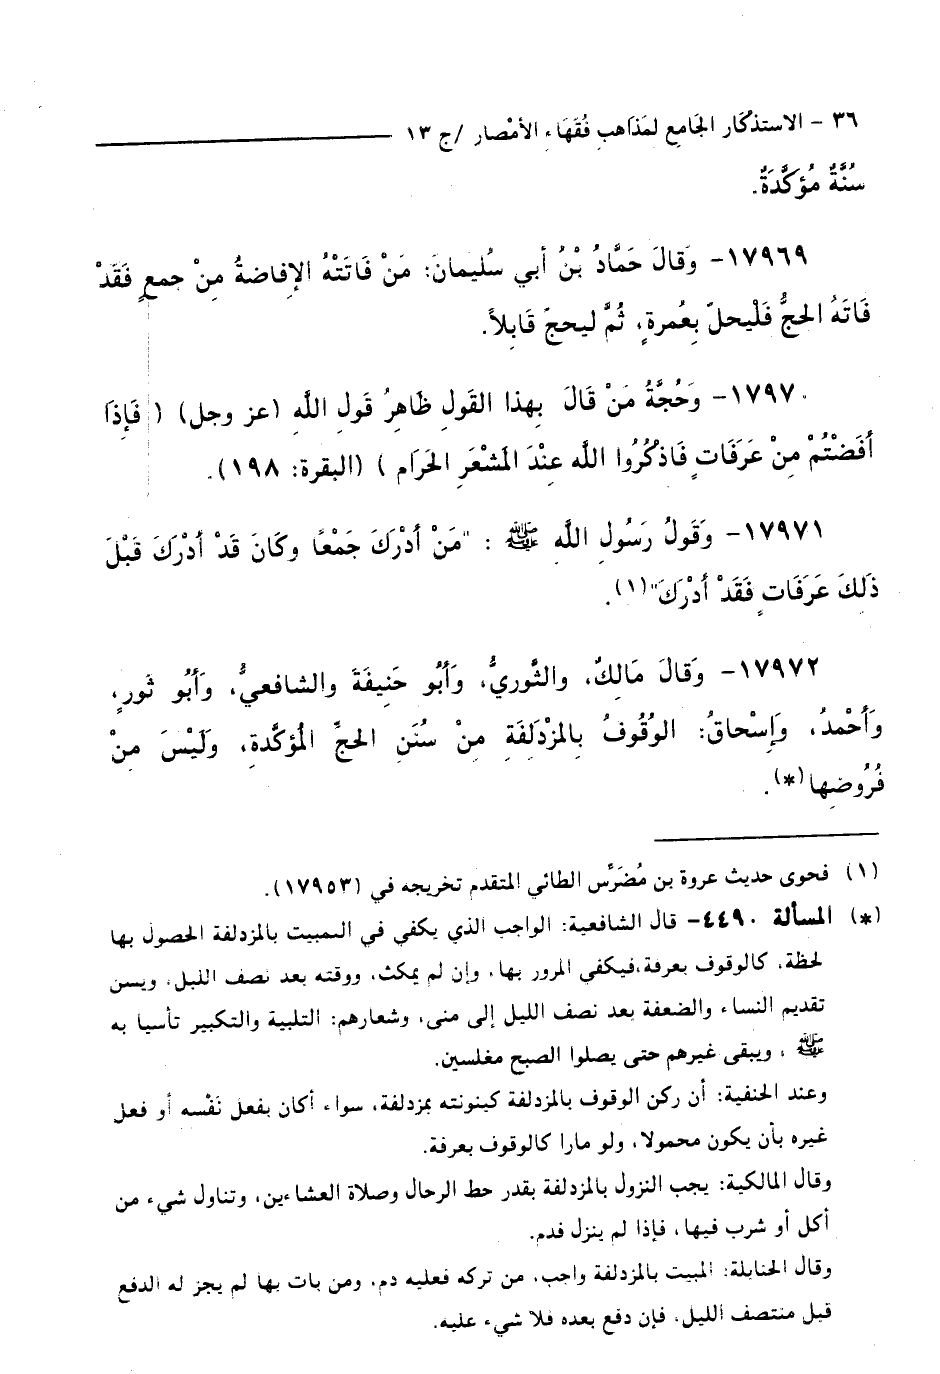 ٣٦ - الاستذكَار الجَامع لمَذاهبِ فُقَهَاءِ الأمْصار /ج ١٣
سُنَّةٌ مُؤكَّدَةٌ.
١٧٩٦٩- وَقالَ حَمَّادُ بْنُ أبي سُليمانَ: مَنْ فَاتَتْهُ الإفاضةُ مِنْ جمعٍ فَقَدْ
فَاتَهُ الحجُّ فَلْيحلّ بِعُمرةٍ، ثُمَّ ليحجّ قَابلاً.
١٧٩٧٠- وَحُجَّةُ مَنْ قَالَ بِهذا القَولِ ظَاهِرُ قَولِ اللَّهِ (عز وجل) ( فَإِذَا
أفَضْتُمْ مِنْ عَرَفَاتٍ فَاذكُرُوا الله عِنْدَ المَشْعَرِ الحَرَام ) (البقرة: ١٩٨).
١٧٩٧١- وَقَولُ رَسُولِ اللَّهِ ﷺ : "مَنْ أدْرَكَ جَمْعًا وكَانَ قَدْ أدْرَكَ قَبْلَ
ذلَكَ عَرَفَاتٍ فَقَدْ أدْرَكَ"(١).
١٧٩٧٢- وَقالَ مَالِكٌ، والثَّوريُّ، وَأَبُو حَنِيفَةَ والشافعيُّ، وَأبُو ثَورٍ،
وَأَحْمدُ، وَإِسْحاقُ: الوُقُوفُ بِالمزْدَلِفَةِ مِنْ سُنَنِ الحجِّ المُؤكَّدةِ، وَلَيْسَ مِنْ
فُرُوضِها(*).
(١) فحوى حديث عروة بن مُضَرِّس الطائي المتقدم تخريجه في (١٧٩٥٣).
(*) المسألة ٤٤٩٠- قال الشافعية: الواجب الذي يكفي في المبيت بالمزدلفة الحصول بها
لحظة، كالوقوف بعرفة،فيكفي المرور بها، وإن لم يمكث، ووقته بعد نصف الليل، ويسن
تقديم النساء والضعفة بعد نصف الليل إلى منى، وشعارهم: التلبية والتكبير تأسيا به
ﷺ ، ويبقى غيرهم حتى يصلوا الصبح مغلسين.
وعند الحنفية: أن ركن الوقوف بالمزدلفة كينونته بمزدلفة، سواء أكان بفعل نَفْسه أو فعل
غيره بأن يكون محمولا، ولو مارا كالوقوف بعرفة.
وقال المالكية: يجب النزول بالمزدلفة بقدر حط الرحال وصلاة العشاءين، وتناول شيء من
أكل أو شرب فيها، فإذا لم ينزل فدم.
وقال الحنابلة: المبيت بالمزدلفة واجب، من تركه فعليه دم، ومن بات بها لم يجز له الدفع
قبل منتصف الليل، فإن دفع بعده فلا شيء عليه.